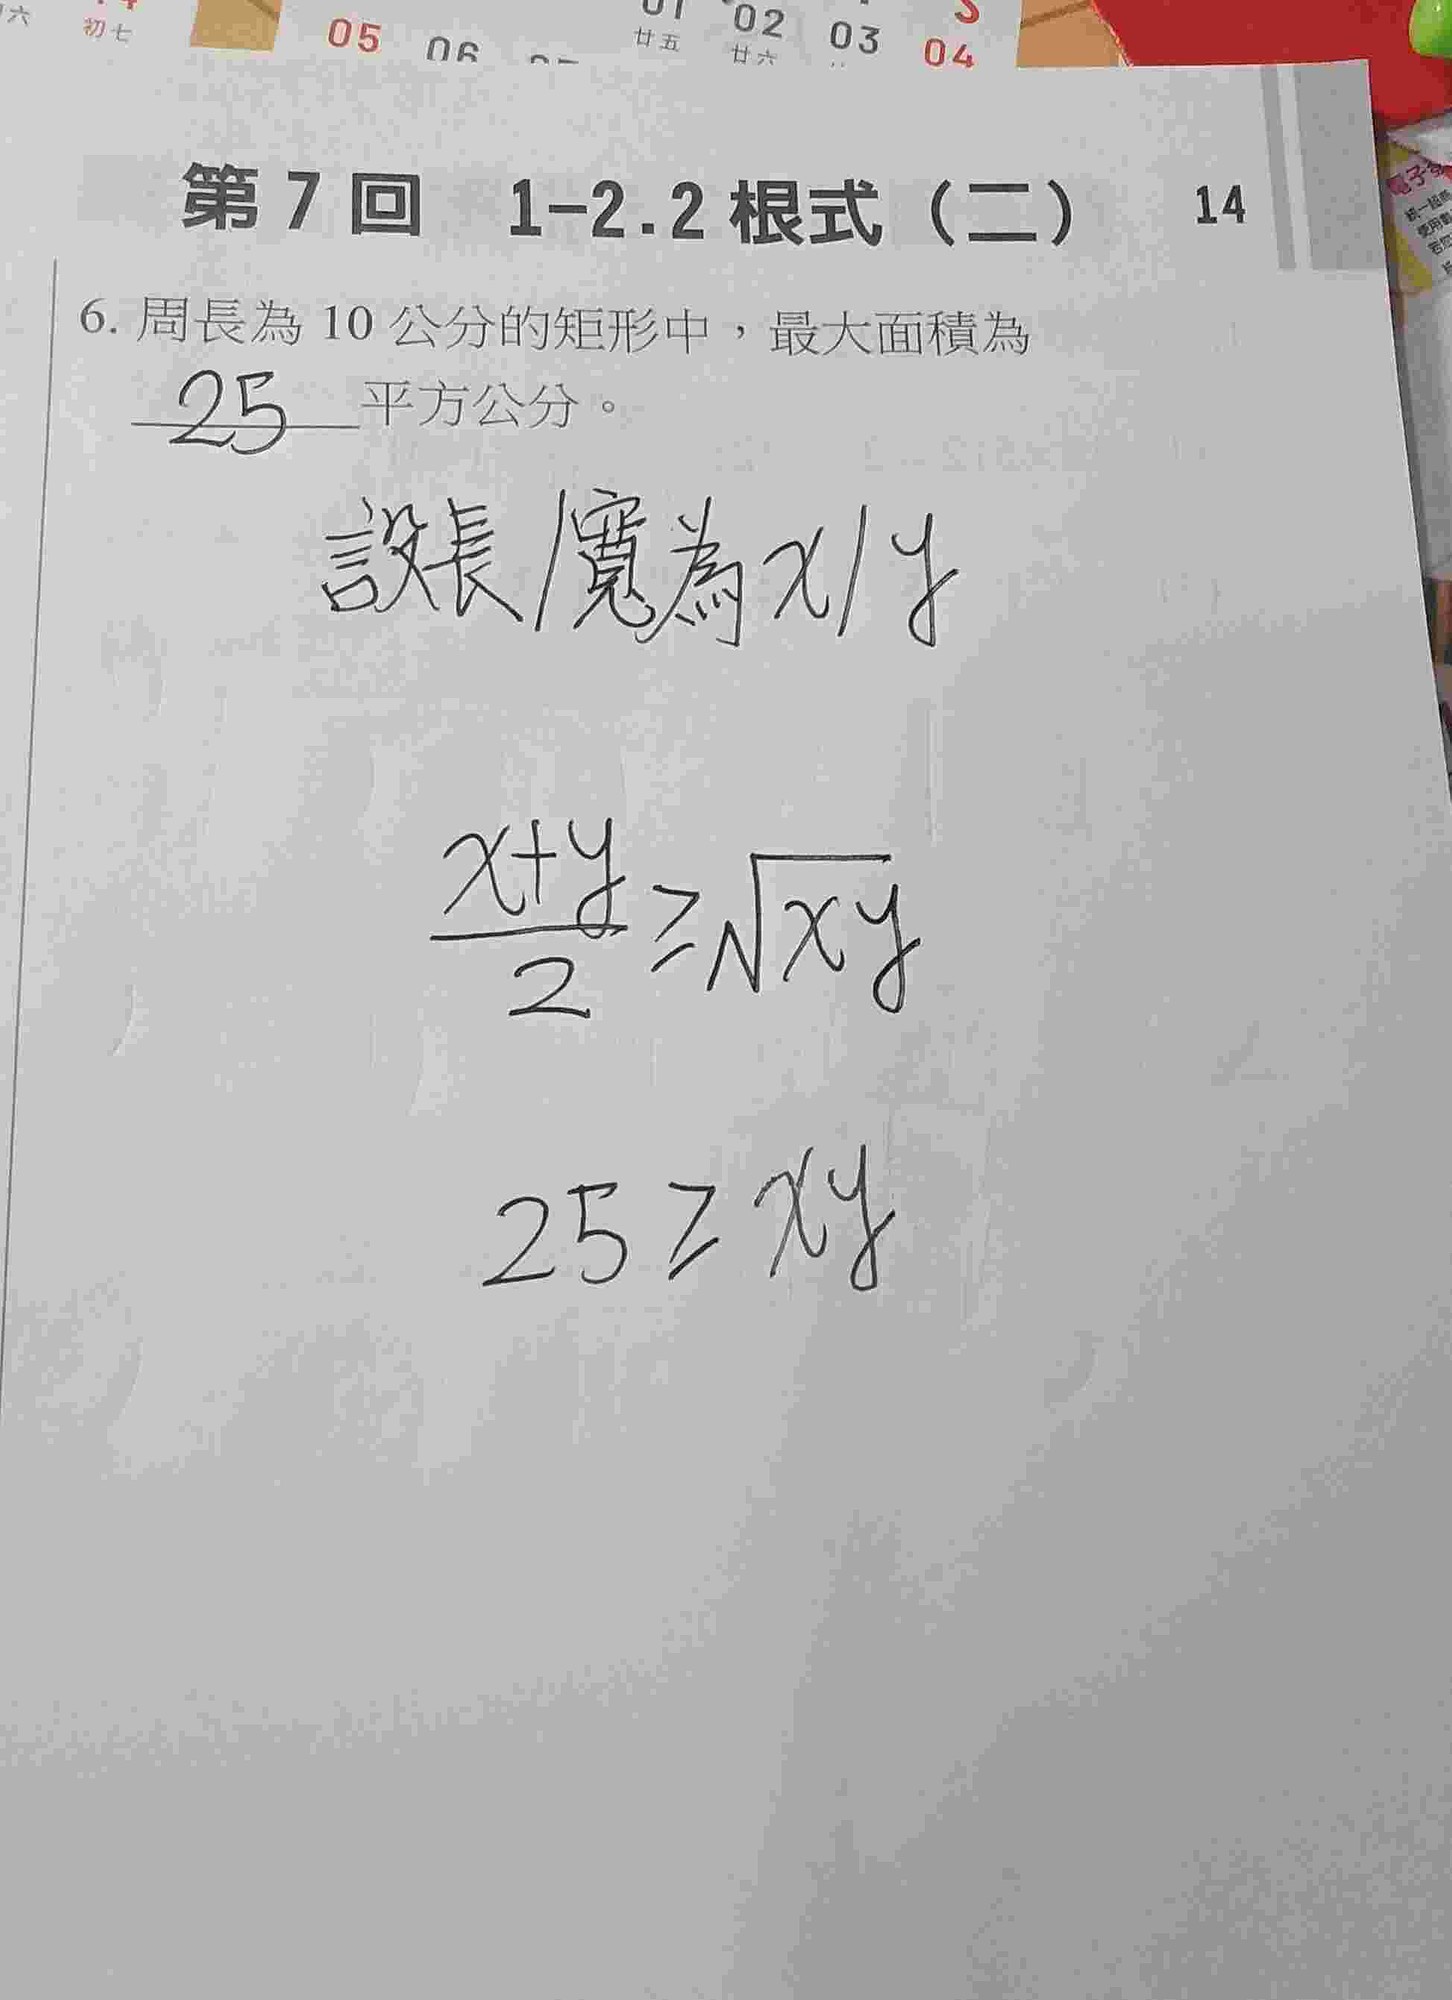 初七
05
06
廿五
02
廿六
03
04
第7回 1-2.2根式(二) 14
6. 周長為 10 公分的矩形中,最大面積為
25 平方公分。
設長/寬為x/y
(x+y)/2 ≥ √xy
25 ≥ xy